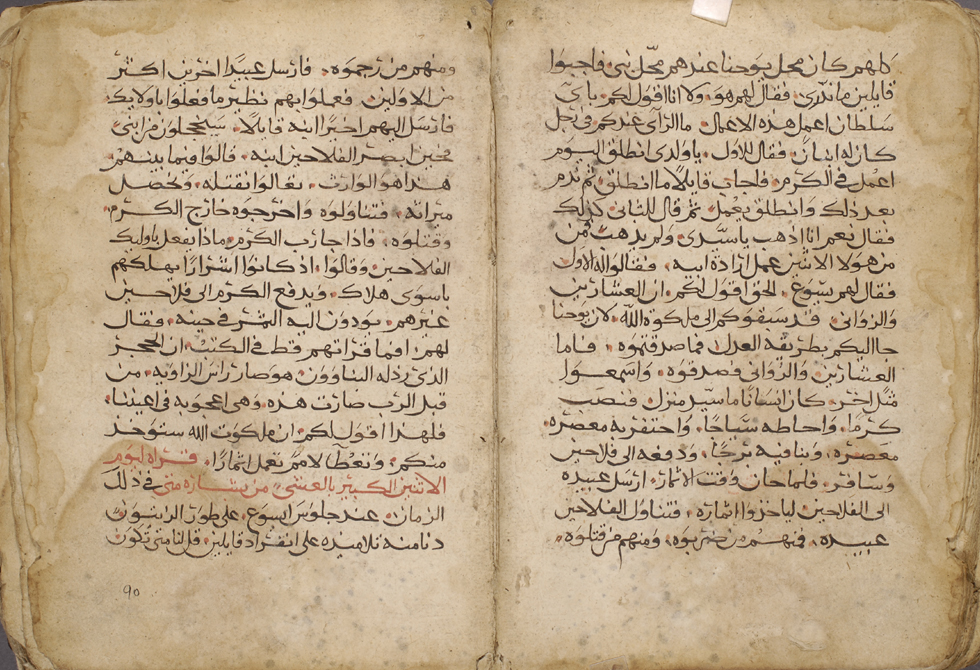 كلهم كان محل يوحنا عندهم محل نبي فاجبوا
قايلين ما ندري • فقال لهم هو • ولا انا اقول لكم باي
سلطان اعمل هذه الاعمال • ما الراى عندكم في رجل
كان له ابنان • فقال للاول • يا ولدي انطلق اليوم
اعمل في الكرم • فاجاب قايلا ما انطلق • ثم ندم
بعد ذلك وانطلق يعمل • ثم قال للثاني كذلك
فقال نعم انا اذهب يا سيدي • ولم يذهب من
من هولا الاثنين عمل ارادة ابيه • فقالوا له الاول
فقال لهم يسوع • الحق اقول لكم • ان العشارين
والزواني • قد سبقوكم الى ملكوة الله • لان يوحنا
جا اليكم بطريقة العدل فما صدقتموه • فاما
العشارين والزواني فصدقوه • واسمعوا
مثلا اخر • كان انسانا ما سيد منزل • فنصب
كرما • واحاطه سياجا • واحتفر به معصره
معصره • وبنا فيه برجا • ودفعه الى فلاحين
وسافر • فلما حان وقت الاثمار • ارسل عبيده
الى الفلاحين لياخذوا اثماره • فتناول الفلاحين
عبيده • فمنهم من ضربوه • ومنهم من قتلوه •
ومنهم من رجموه • فارسل عبيدا اخرين اكثر
من الاولين • فعملوا بهم نظير ما فعلوا باولايك
فارسل اليهم اخيرا ابنه قايلا • سيخجلون من ابني
فحين ابصر الفلاحين ابنه • قالوا فيما بينهم
هذا هو الوارث • تعالوا نقتله • ونحصل
ميراثه • فتناولوه واخرجوه خارج الكرم
وقتلوه • فاذا جا رب الكرم ماذا يفعل باوليك
الفلاحين • وقالوا • اذ كانوا اشرارا يهلكهم
باسوى هلاك • ويدفع الكرم الى فلاحين
غيرهم • يودون اليه الثمر في حينه • فقال
لهم • افما قراتهم قط في الكتب • ان الحجر
الذي رذله البناوون • هو صار راس الزاويه • من
قبل الرب صارت هذه • وهي اعجوبه في اعيننا •
فلهذا اقول لكم • ان ملكوت الله ستوخذ
منكم • وتعطا لامم تعمل اثمارا • قراه ليوم
الاثنين الكبير بالعشي • من بشارة متى في ذلك
الزمان • عند جلوس ايسوع • على طور الزيتون
دنا منه تلاميذه على انفراد قايلين • قل لنا متى تكون
90